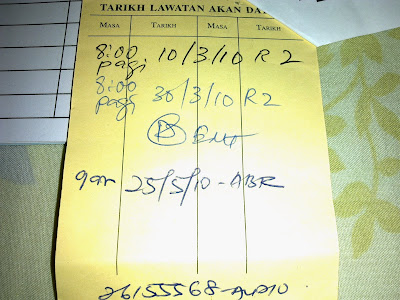 TARIKH LAWATAN AKAN DA
MASA TARIKH MASA TARIKH
8:00 pagi 10/3/10 R2
8:00 pagi 30/3/10 R2
ENT
9am 25/5/10 - ABR
26155568-